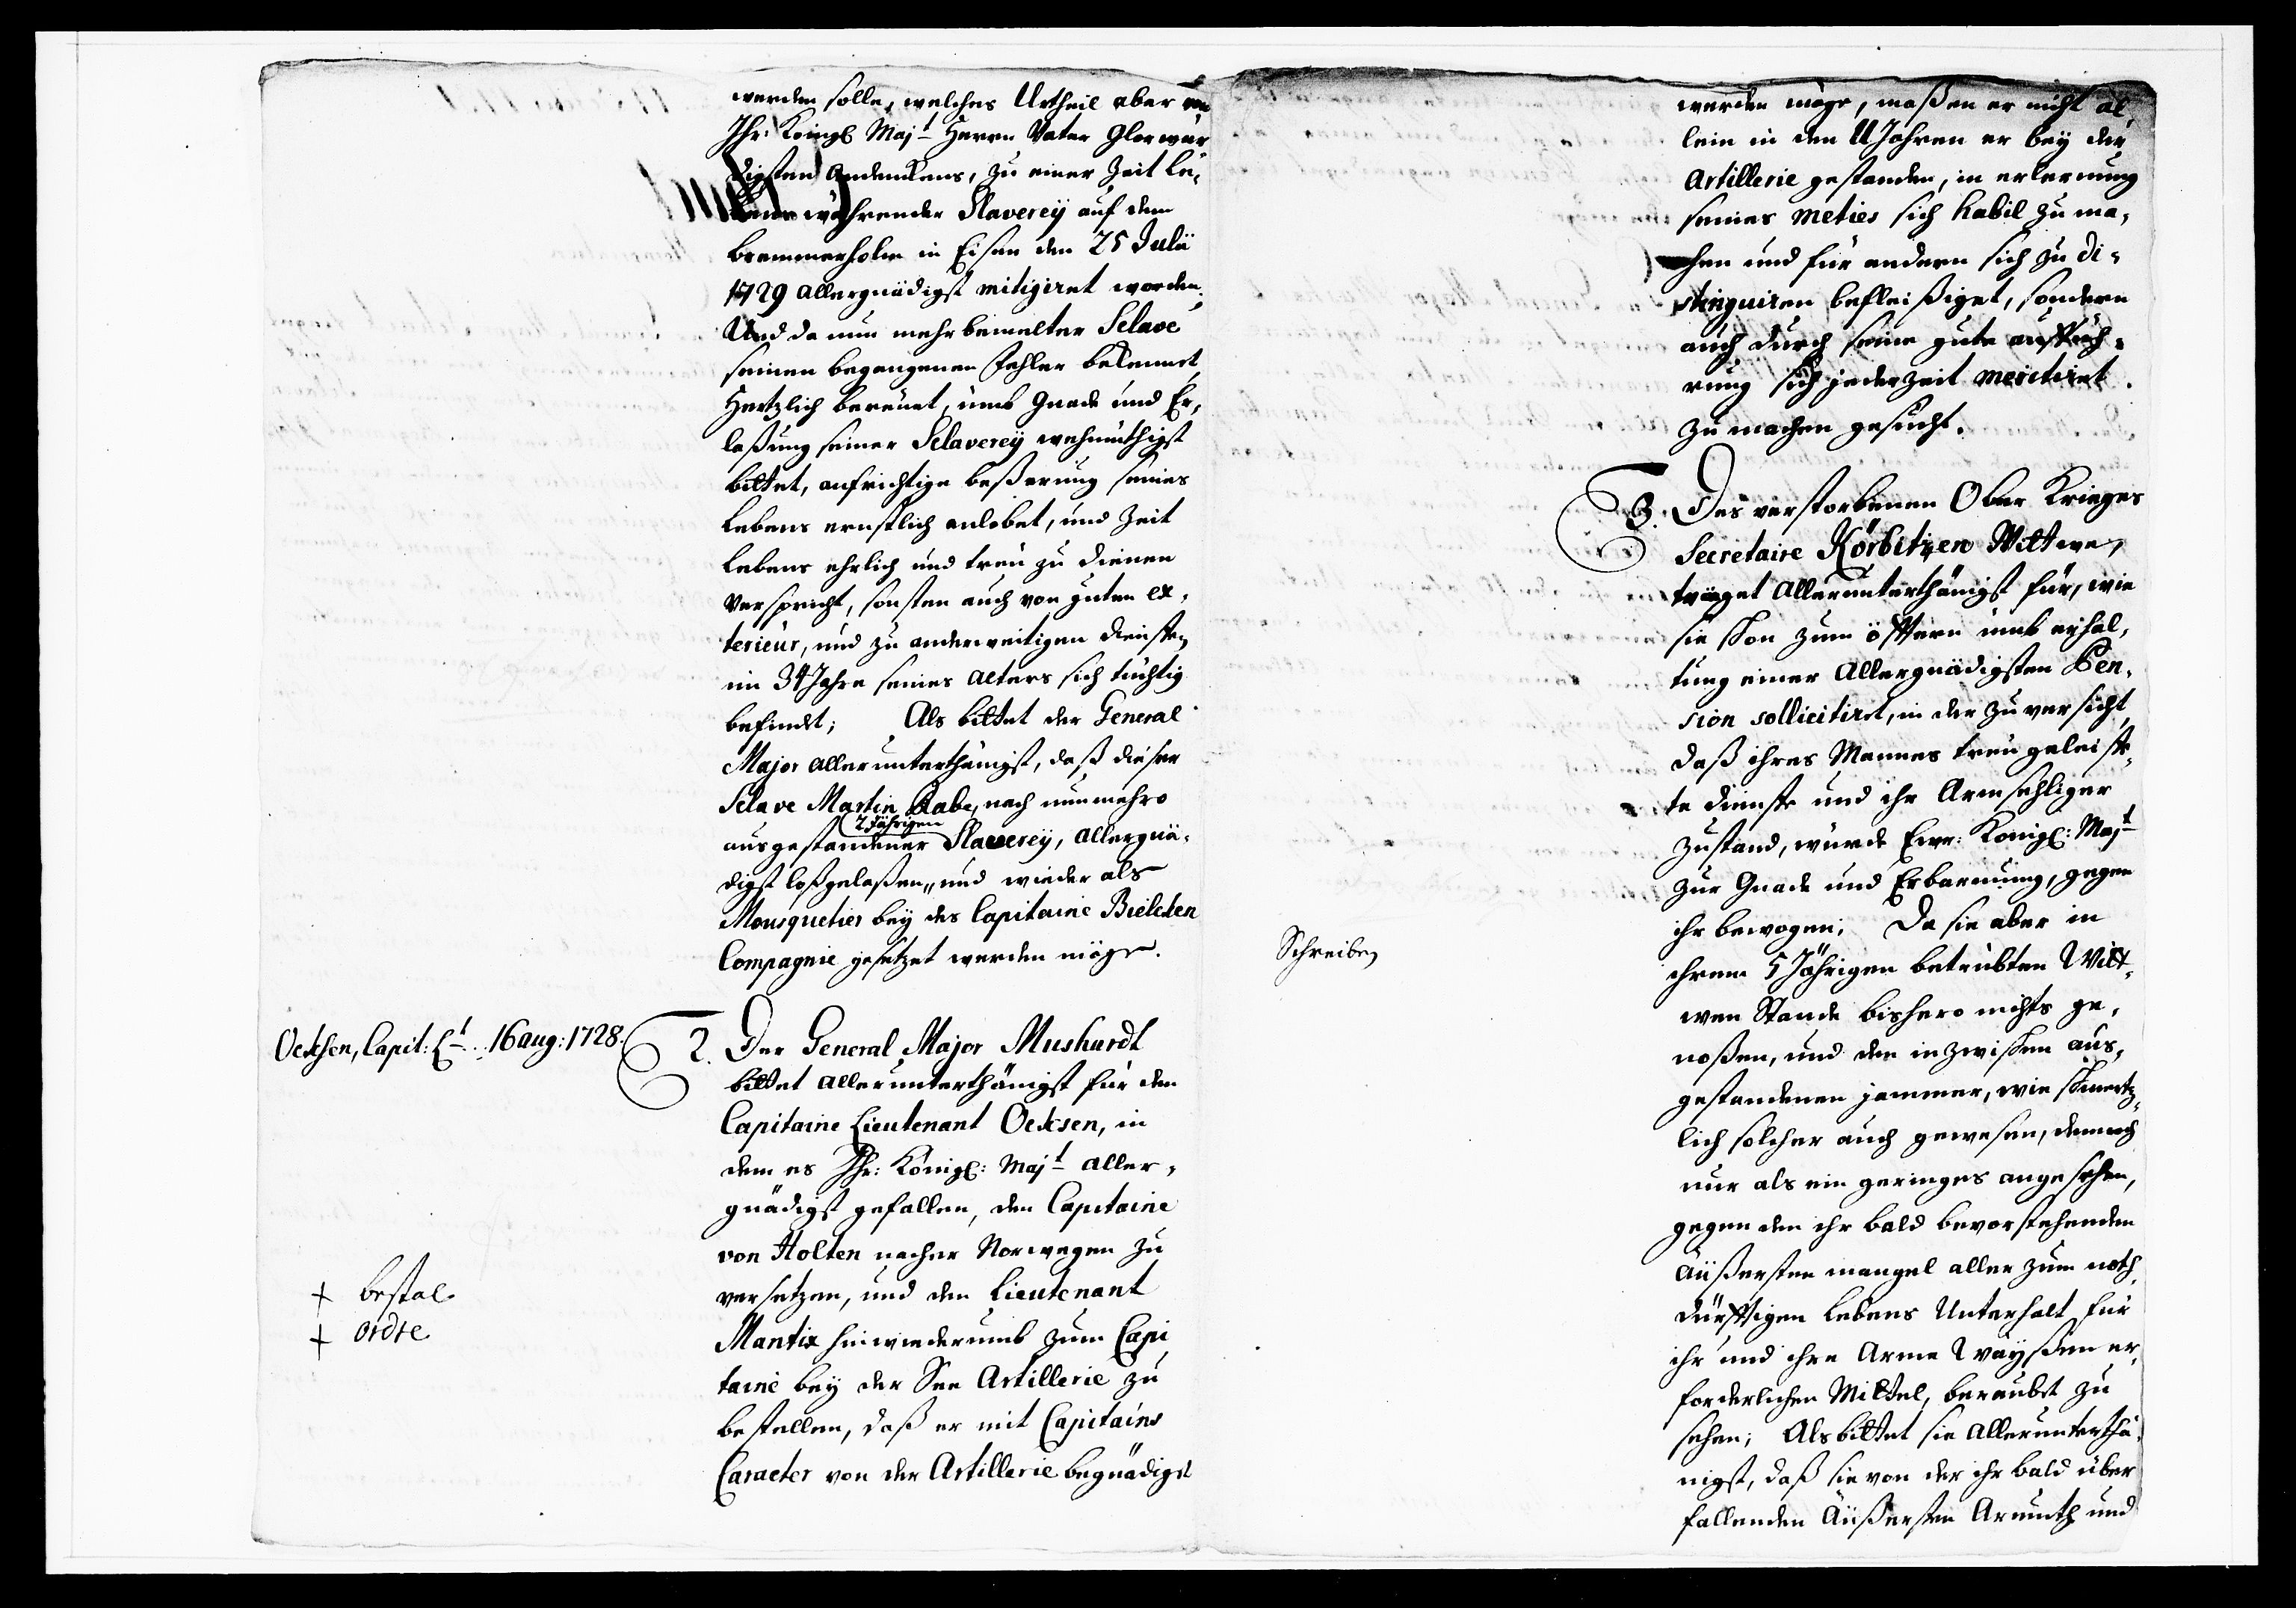 werden solle, welches Urtheil aber von
Ihr: Königl Majt Herrn Vater Glorwür
digsten Andenkens, zu einer Zeit Le,
bens währender Slaverey auf dem
bremmerholm in Eisen den 25 Julii
1729 allergnädigst mitigiret worden.
Und da nun mehr bemelter Sclave
seinen begangenen Fehler bekennet,
Hertzlich bereuet, umb Gnade und Er,
laßung seiner Sclaverey wehmüthigst
bittet, aufrichtige beßerung seines
Lebens ernstlich anlobet, und Zeit
Lebens ehrlich und treu zu dienen
verspricht, sonsten auch von guten ex,
terieur, und zu anderweitigen Diensten
im 34 Jahre seines alters sich tüchtig
befindet; Als bittet der General
Major allerunterthänigst, daß dieser
Sclave Martin Rabe, nach nunmehro
2 Jährigen
ausgestandener Slaverey, allergnä,
digst loßgelaßen, und wieder als
Mousquetier bey des Capitaine Bieleken
Compagnie gesetzet werden möge.
Oeksen, Capit: Lt. 16 aug: 1728.
2. Der General Major Mushardt
bittet allerunterthänigst für den
Capitaine Lieutenant Oeksen, in
dem es Ihr: Königl: Majt aller,
gnädigst gefallen, den Capitaine
von Holten nacher Norwegen zu
versetzen, und den Lieutenant
+ bestal
+ ordre
Mantix hinwiederumb zum Capi
taine bey der See Artillerie zu
bestellen, daß er mit Capitains
Caracter von der Artillerie begnädigt
werden möge, maßen er nicht al
lein in den 11 Jahren er bey der
Artillerie gestanden, in erlernung
seines meties sich habil zu ma,
chen und für andern sich zu di,
stinguiren befleißiget, sondern
auch durch seine gute aufführ,
rung sich jederzeit meritiret
zu machen gesucht.
3. Des verstorbenen Ober Krieges
Secretaire Körbitzen Wittwe,
träget allerunterthänigst für, wie
sie schon zum öfftern umb erhal,
tung einer Allergnädigsten Pen,
sion sollicitiret, in der zuversicht,
daß ihres Mannes treu geleiste,
te dienste und ihr Armsehliger
Zustand, würde Ewr: Königl: Majt
zur Gnade und Erbarmung, gegen
ihr bewogen; Da sie aber in
Schreiben
ihrem 5 Jährigen betrübten Witt,
wen Stande bishero nichts ge,
noßen, und den inzwischen aus,
gestandenen jammer, wie schmertz,
lich solcher auch gewesen, dennoch
nur als ein geringes angesehen,
gegen den ihr bald bevorstehenden
äußersten mangel aller zum noth
dürfftigen Lebens Unterhalt für
ihr und ihre Arme Waysen er,
forderlichen Mittel, beraubt zu
sehen; Als bittet sie allerunterthä,
nigst, daß sie von der ihr bald über
fallenden äußersten Armuth und